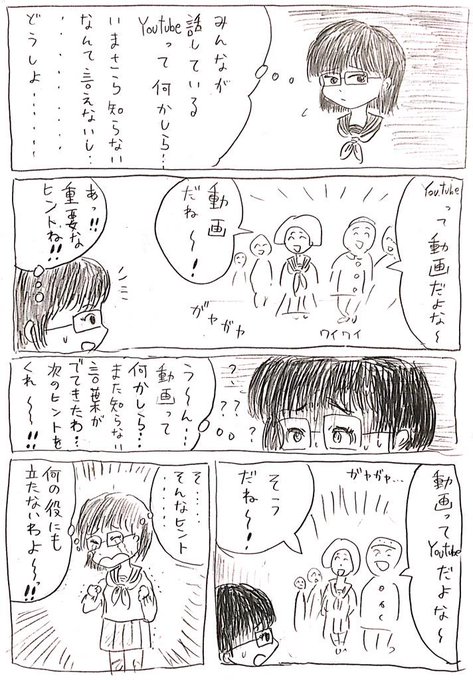 みんなが
話している
Youtubeって何かしら…
いまさら知らない
なんて言えないし…
どうしよ……
Youtubeって動画だよな～
動画
だね～!
ガヤガヤ
ワイワイ
あっ!!
重要な
ヒントね!!
う～ん…
動画って
何かしら…
また知らない
言葉が
でてきたわ…
次のヒントを
くれ～～!!
? ? ? ?
動画ってYoutubeだよな～
ガヤガヤ…
そう
だね～!
そ……
そんなヒント
何の役にも
立たないわよ～っ!!